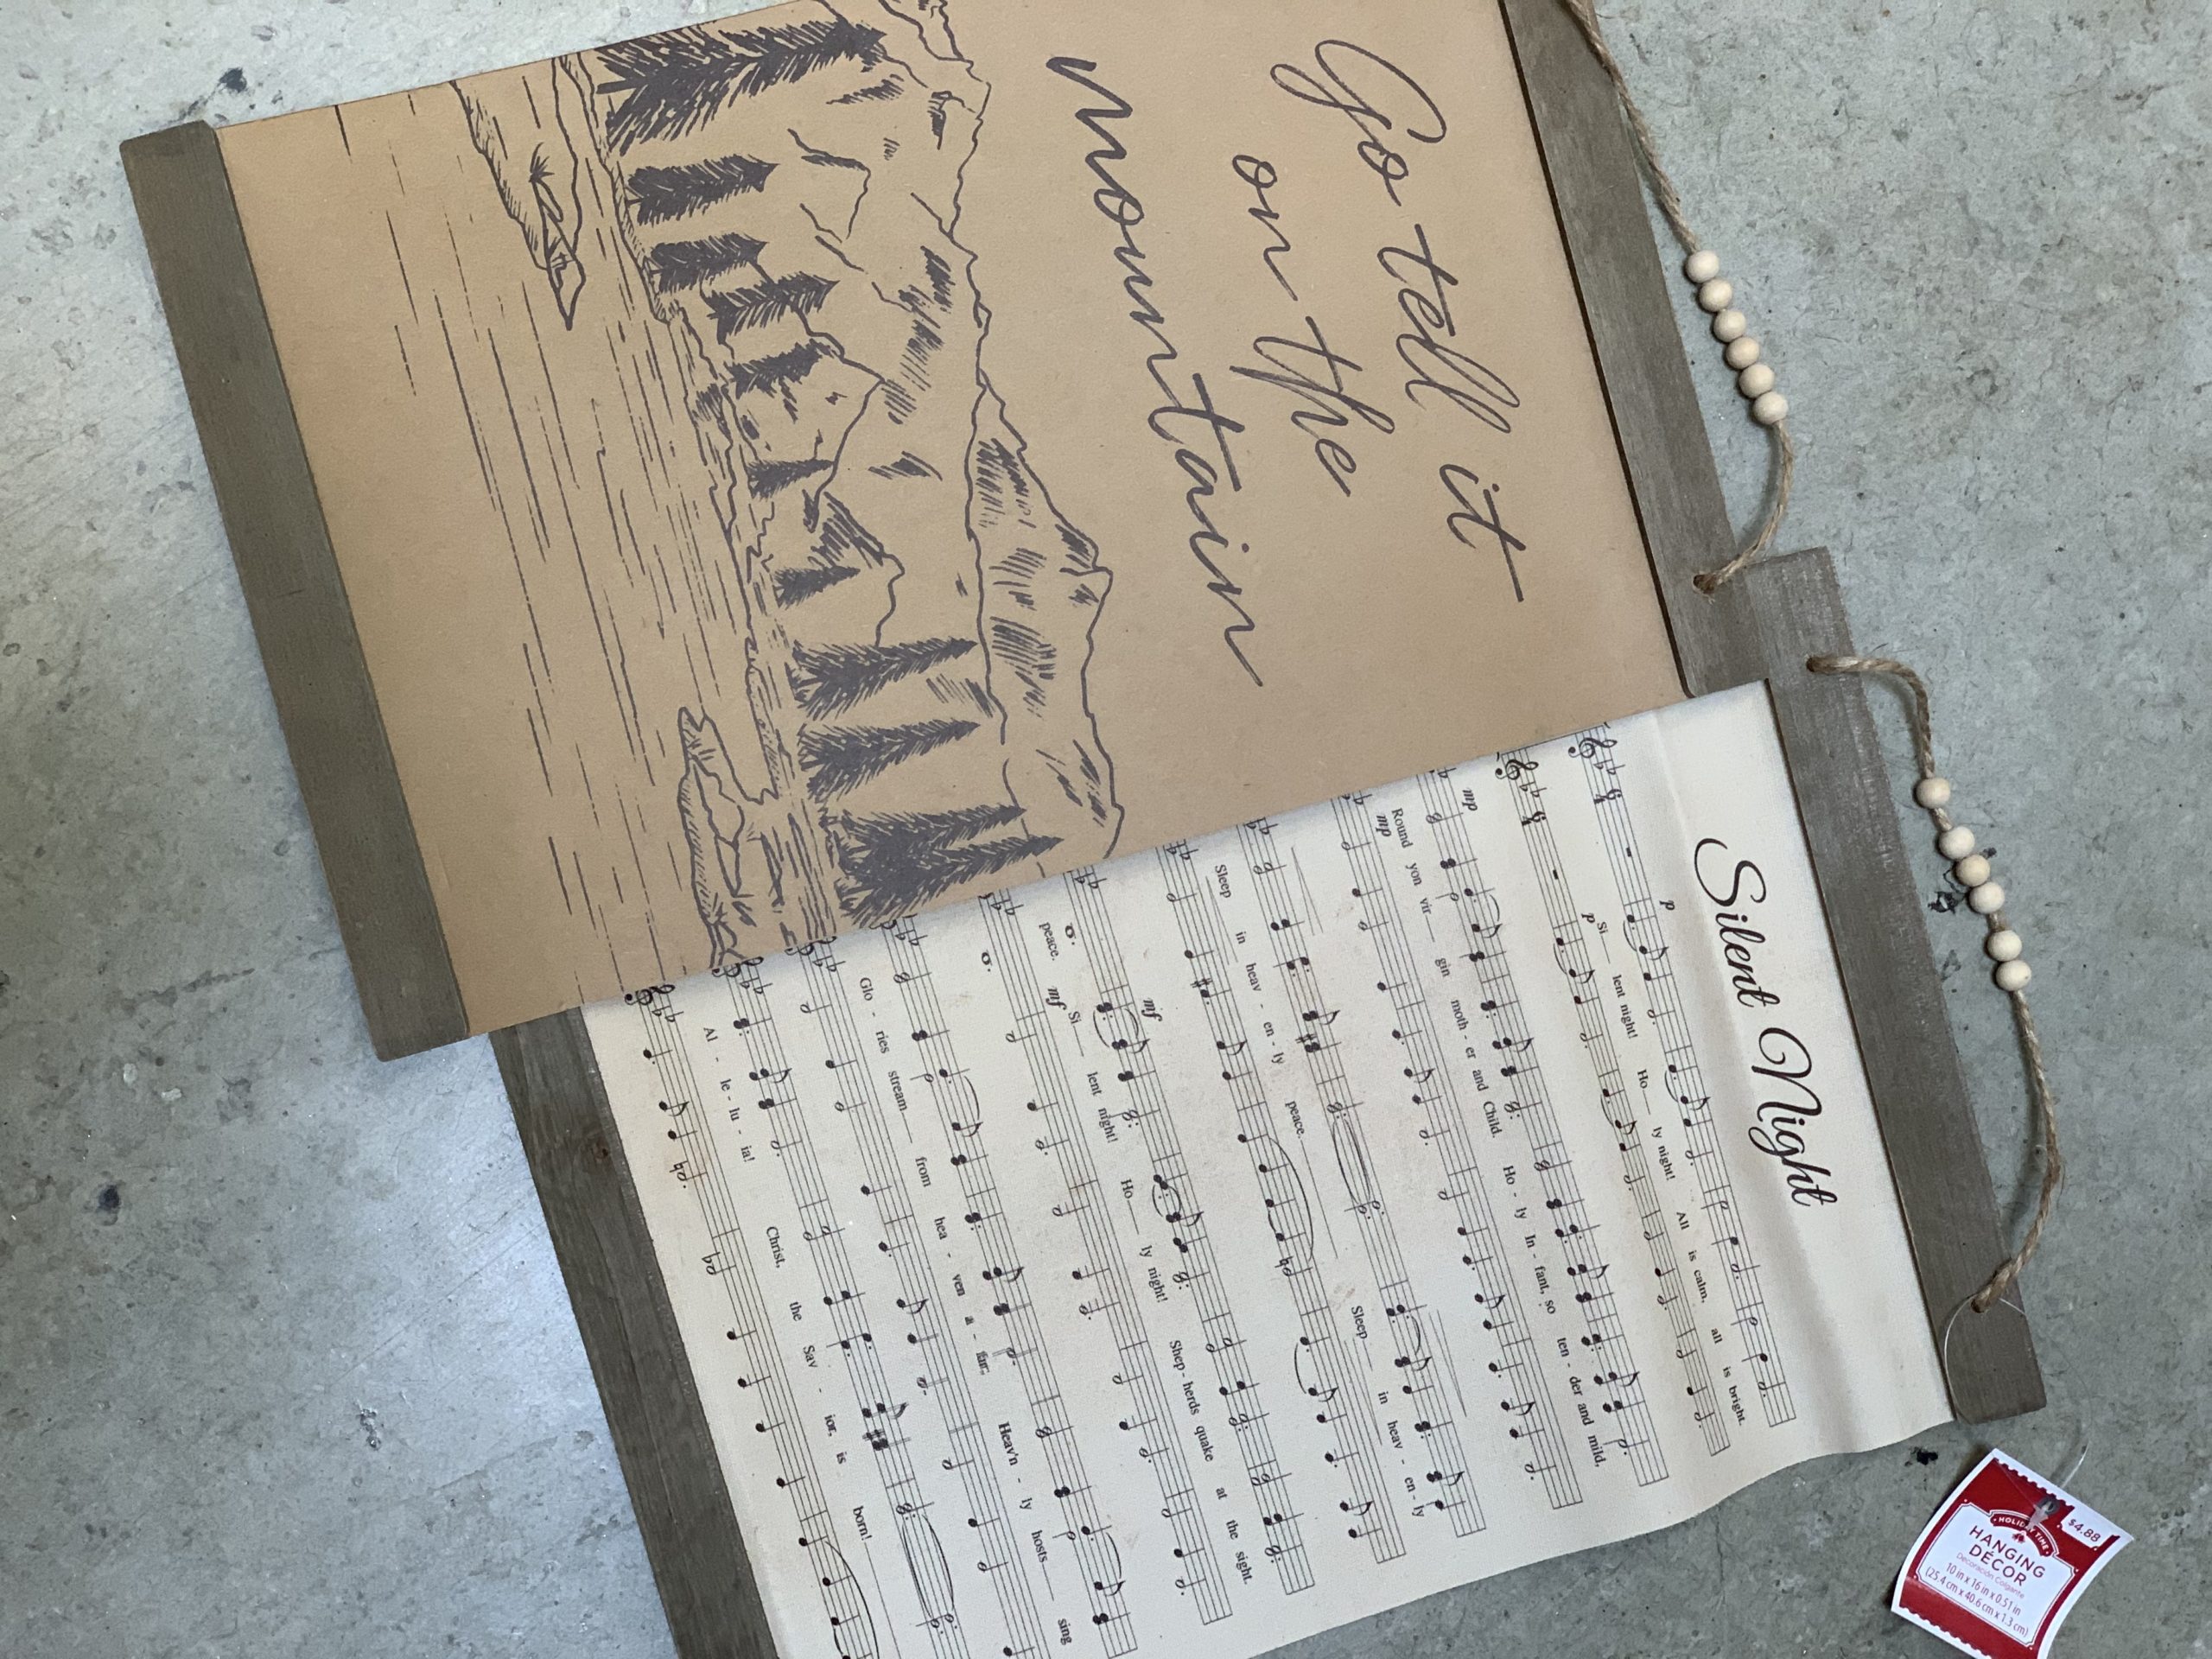 Go tell it
on the
mountain
Silent Night
p
Si lent night! Ho ly night! All is calm, all is bright.
p
mp
Round yon vir gin moth - er and Child. Ho - ly In - fant, so ten - der and mild,
mp
Sleep in heav - en - ly peace. Sleep in heav - en - ly
mf
peace. Si lent night! Ho ly night! Shep - herds quake at the sight.
mf
Glo - ries stream from hea - ven a - far. Heav'n - ly hosts sing
Al - le - lu - ia! Christ, the Sav - ior, is born!
$4.88
HOLIDAY TIME
HANGING
DÉCOR
Decoración Colgante
10 in x 16 in x 0.51 in
(25.4 cm x 40.6 cm x 1.3 cm)